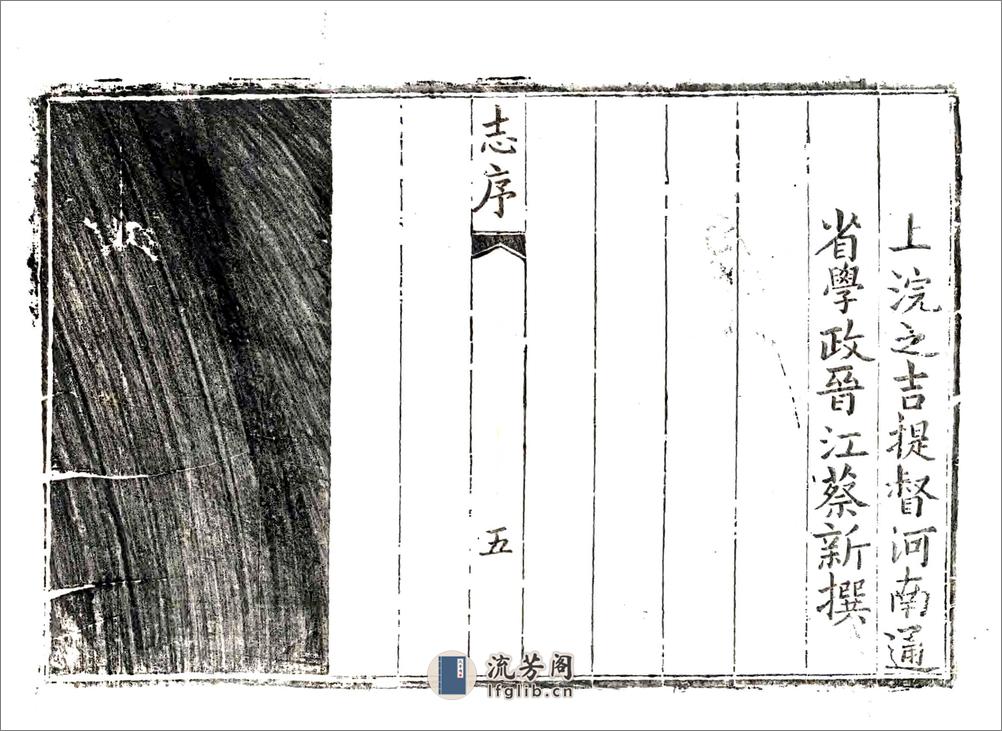 上浣之吉提督河南通
省學政晉江蔡新撰
志序
五
流芳阁
lfglib.cn